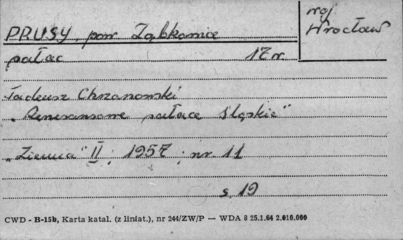 PRUSY, pow. Ząbkowice
woj
Wrocław
pałac 17 w.
Tadeusz Chrzanowski
"Renesansowe pałace Śląskie"
"Ziemia" II, 1957, nr 11
s. 19
CWD - B-15b, Karta katal. (z liniat.), nr 244/ZW/P — WDA 8 25.1.64 2.010.000